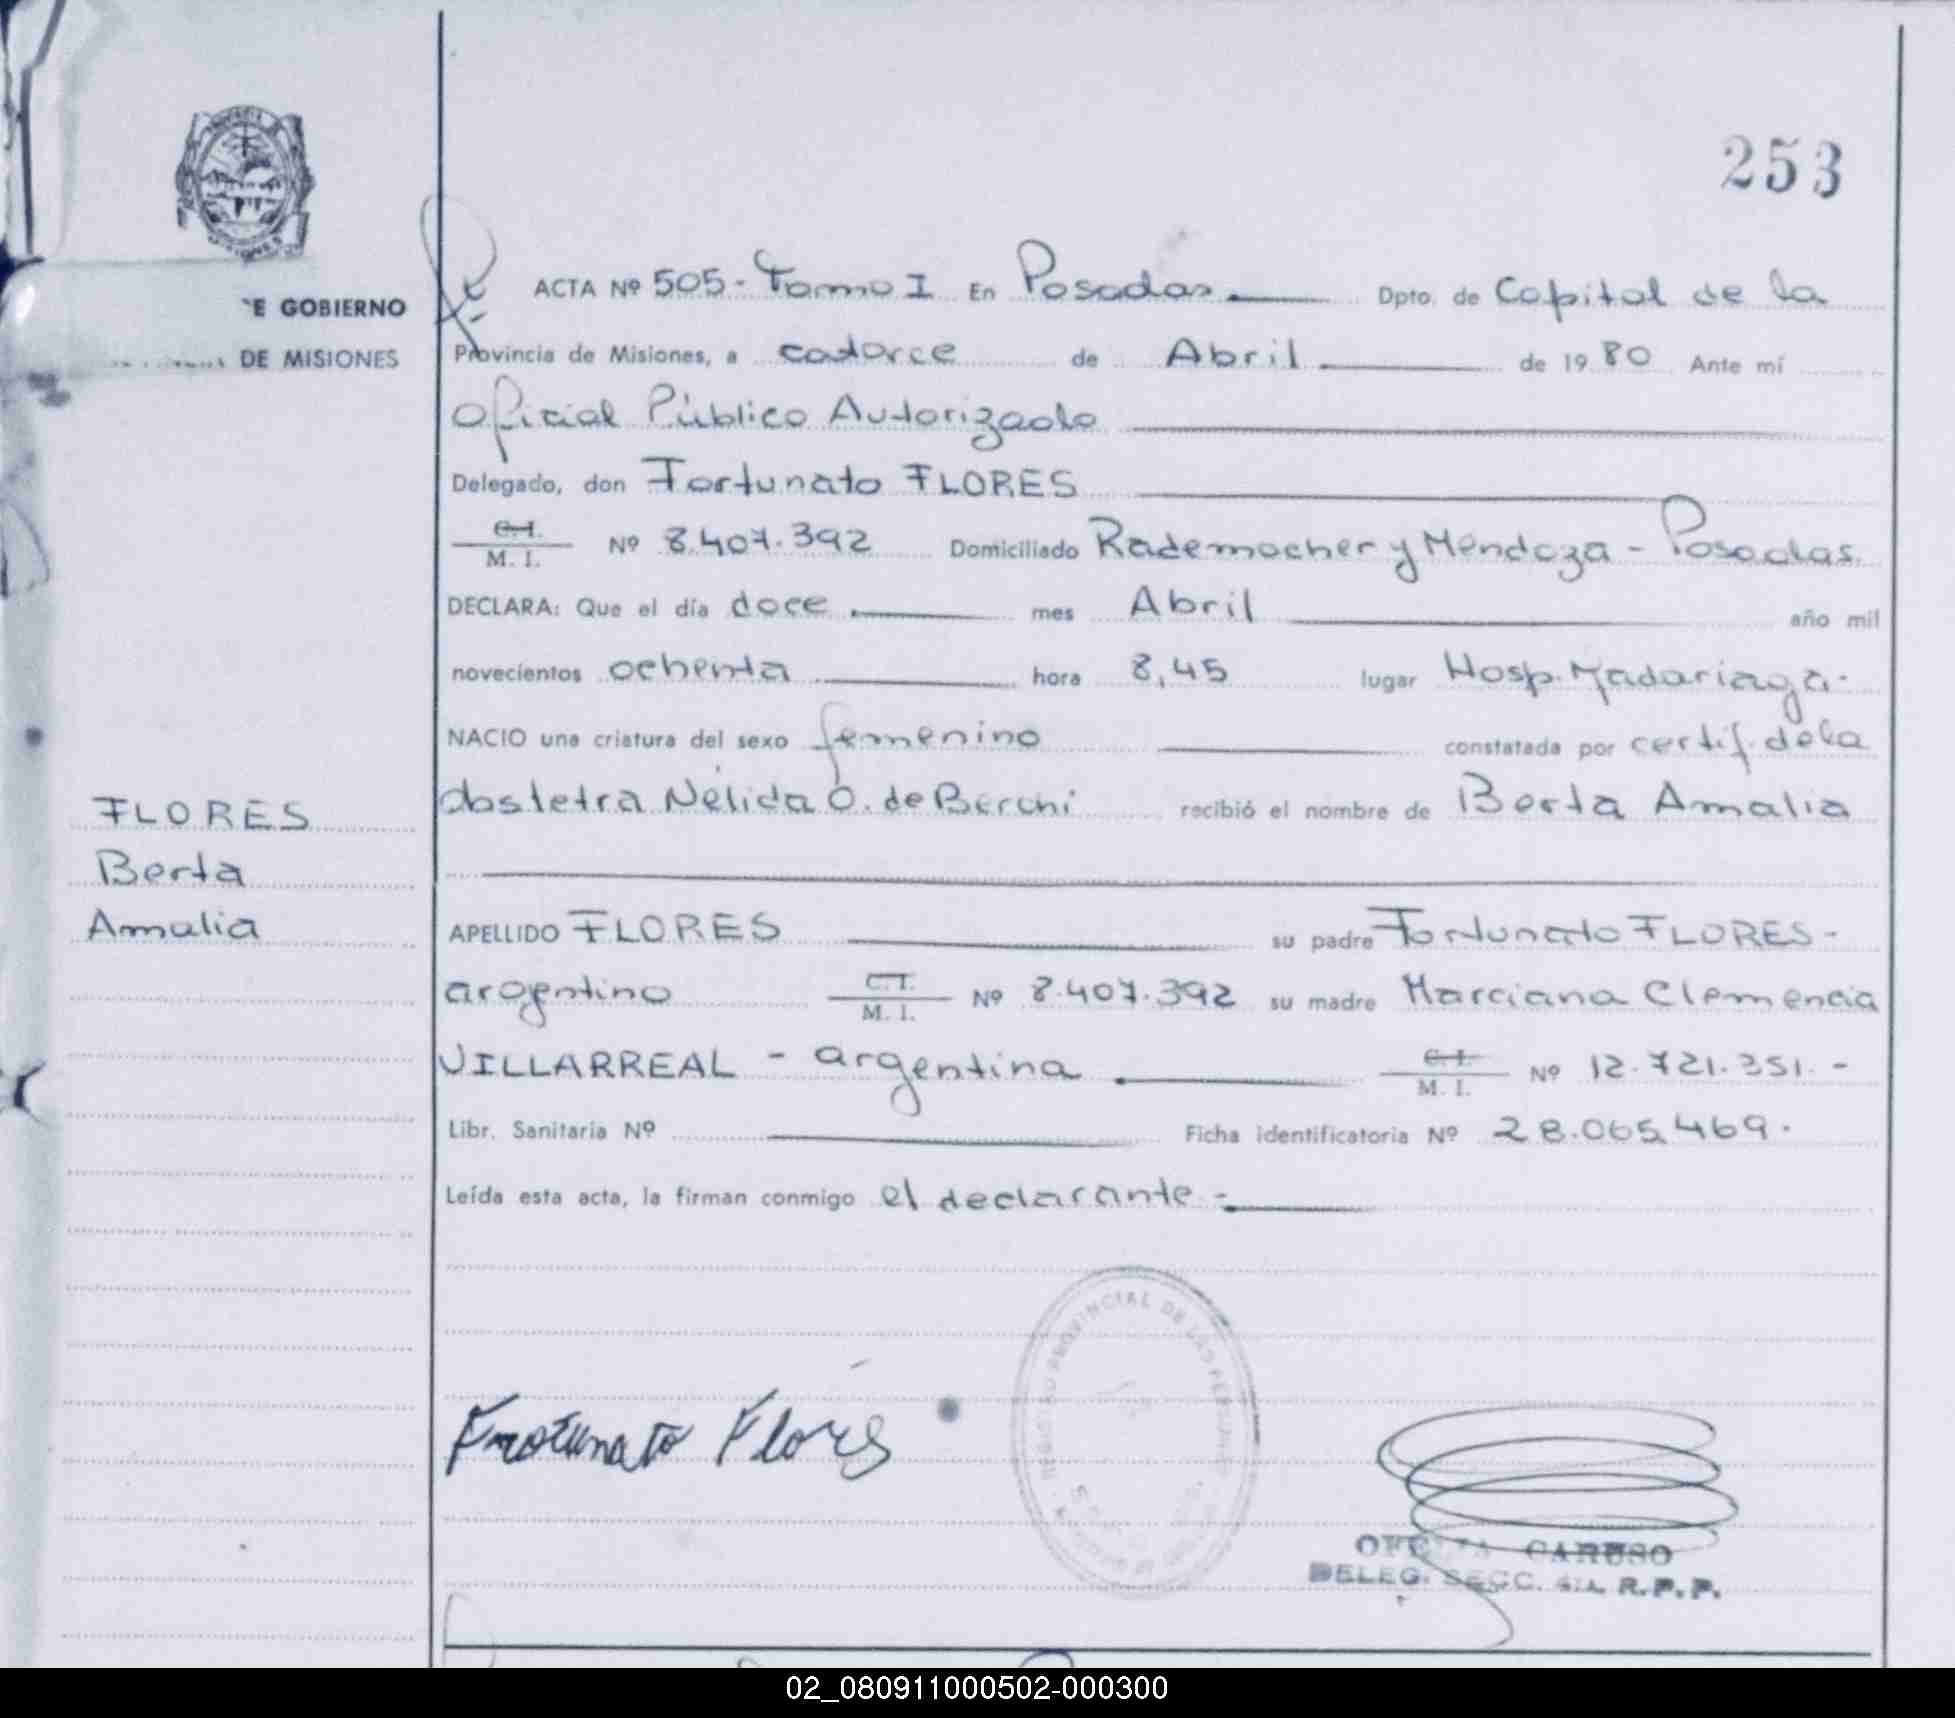 253
E GOBIERNO
DE MISIONES
ACTA Nº 505 - Tomo I En Posadas Dpto. de Capital de la
Provincia de Misiones, a catorce de Abril de 1980 Ante mí
Oficial Público Autorizado
Delegado, don Fortunato FLORES
C.I.
M. I. Nº 8.407.392 Domiciliado Rademacher y Mendoza - Posadas
DECLARA: Que el día doce mes Abril año mil
novecientos ochenta hora 8,45 lugar Hosp. Madariaga.
NACIO una criatura del sexo femenino constatada por certif. de la
obstetra Nélida O. de Berchi recibió el nombre de Berta Amalia
FLORES
Berta
Amalia
APELLIDO FLORES su padre Fortunato FLORES -
argentino C.I.
M. I. Nº 8.407.392 su madre Marciana Clemencia
VILLARREAL - argentina C.I.
M. I. Nº 12.721.351. -
Libr. Sanitaria Nº Ficha identificatoria Nº 28.065.469.
Leída esta acta, la firman conmigo el declarante -
REGISTRO PROVINCIAL DE LAS PERSONAS
Frotunato Flores
CARUSO
DELEG. SECC. 4ta. R.P.P.
02_080911000502-000300